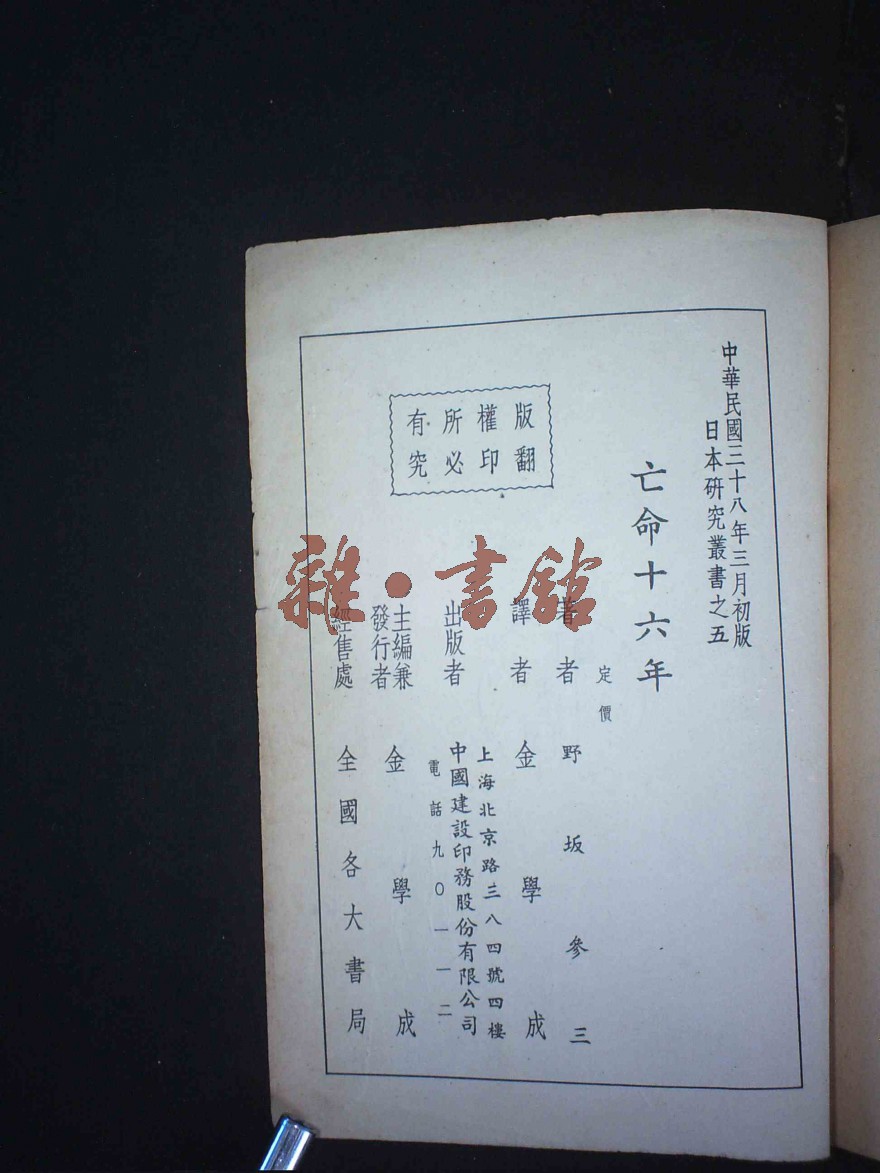 中華民國三十八年三月初版
日本研究叢書之五
亡命十六年
定價
著者 野坂參三
譯者 金學成
版權所有
翻印必究
出版者
上海北京路三八四號四樓
中國建設印務股份有限公司
電話九〇一一二
主編兼
發行者 金學成
經售處 全國各大書局
雜·書館